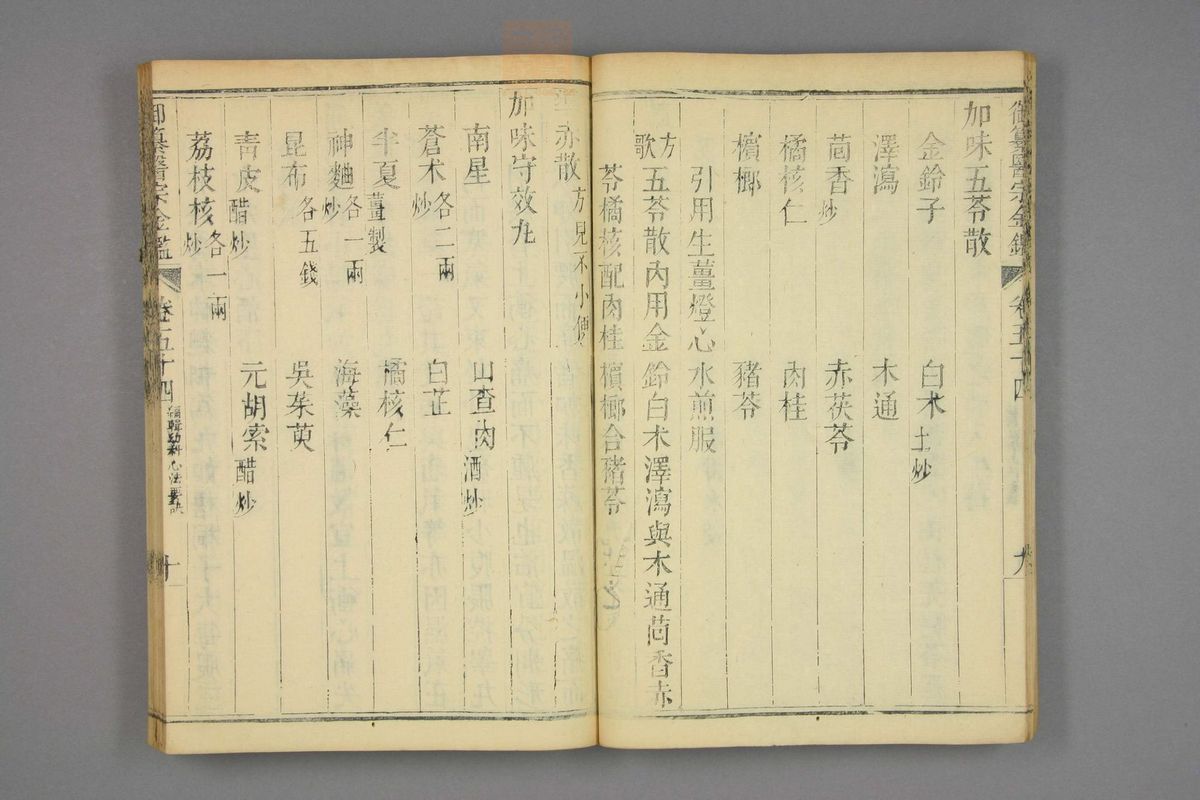 御纂醫宗金鑑 卷五十四 九
加味五苓散
金鈴子 白朮土炒
澤瀉 木通
茴香炒 赤茯苓
橘核仁 肉桂
檳榔 豬苓
引用生薑燈心水煎服
方歌 五苓散內用金鈴白朮澤瀉與木通茴香赤
苓橘核配肉桂檳榔合豬苓
導赤散方見不小便
加味守效丸
南星 山查肉酒炒
蒼朮炒各二兩 白芷
半夏薑製 橘核仁
神麯炒各一兩 海藻
昆布各五錢 吳茱萸
青皮醋炒 元胡索醋炒
荔枝核炒各一兩
御纂醫宗金鑑 卷五十四 編輯幼科心法要訣 十